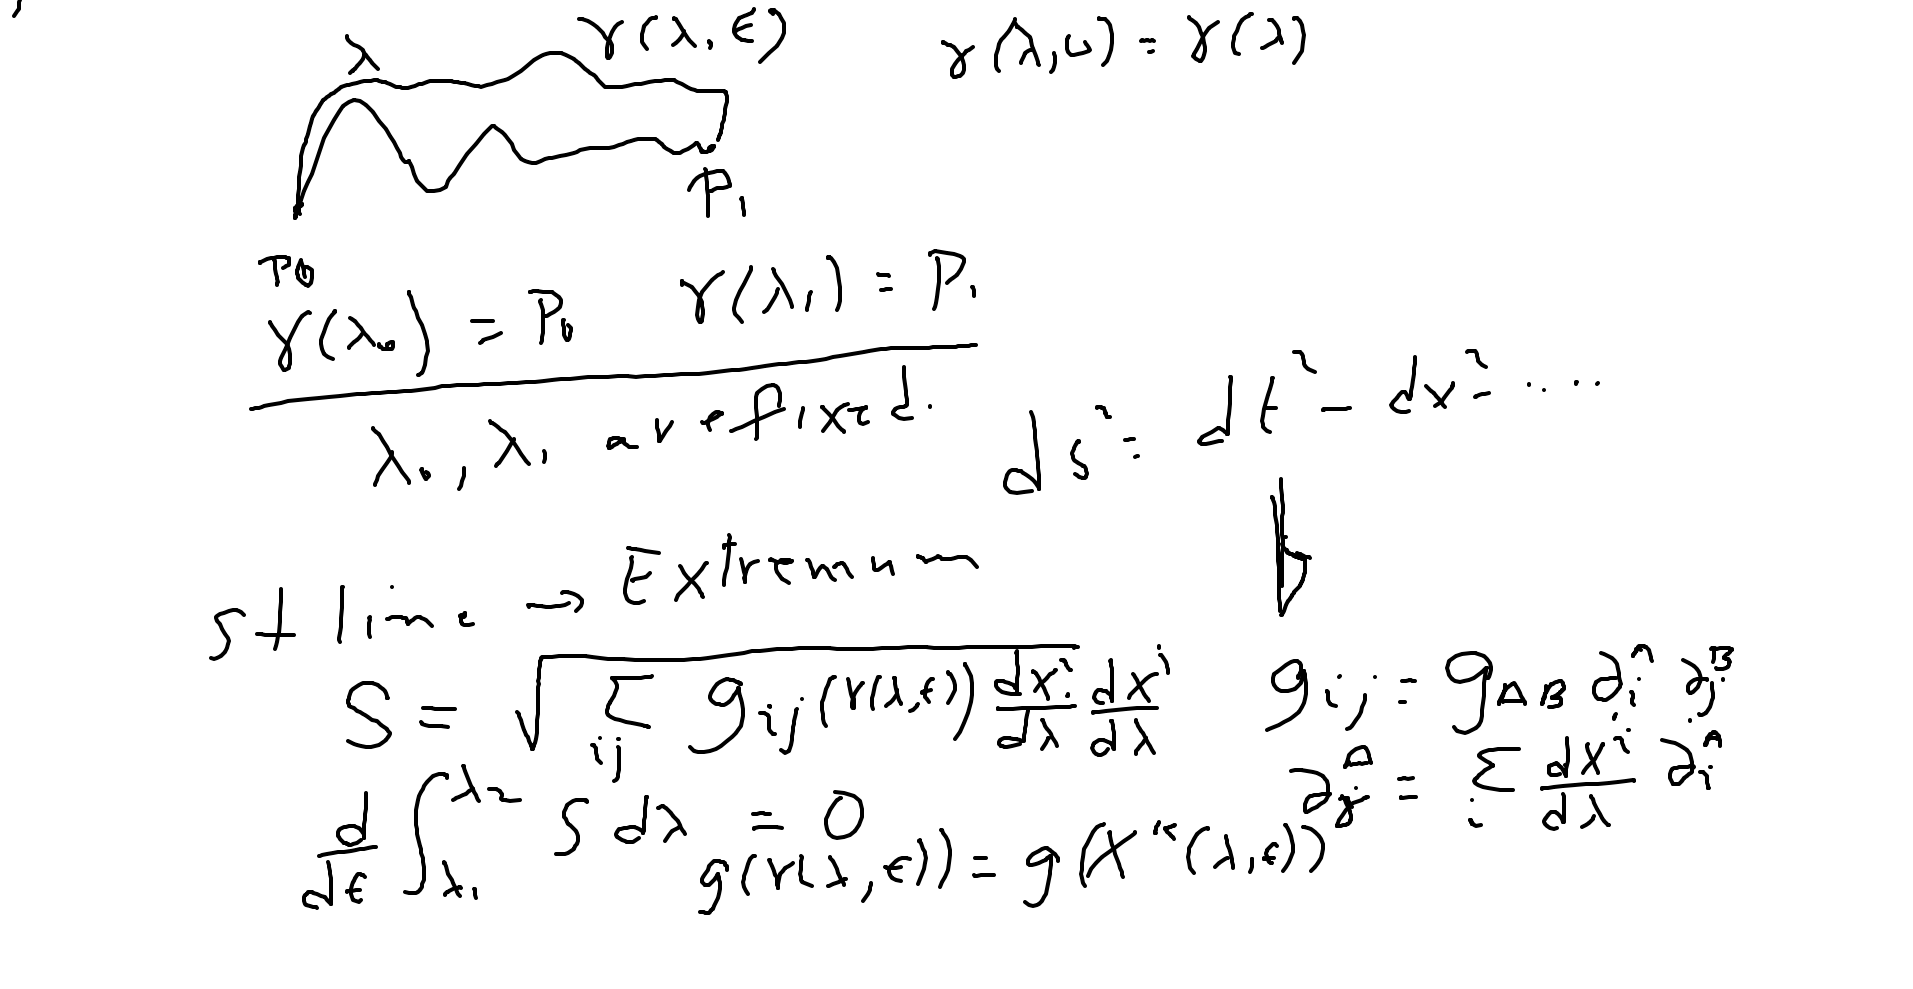 γ(λ, ϵ)
γ(λ, 0) = γ(λ)
λ
P₁
P₀
γ(λ₀) = P₀ γ(λ₁) = P₁
λ₀, λ₁ are fixed.
ds² = dt² - dx² .....
st line → Extremum
S = √(∑_{ij} g_{ij}(γ(λ,ϵ)) dxⁱ/dλ dxʲ/dλ)
g_{ij} = g_{AB} ∂_i^A ∂_j^B
∂_γ^A = ∑_i dxⁱ/dλ ∂_i^A
d/dϵ ∫_{λ₁}^{λ₂} S dλ = 0
g(γ(λ, ϵ)) = g(X^k(λ,ϵ))